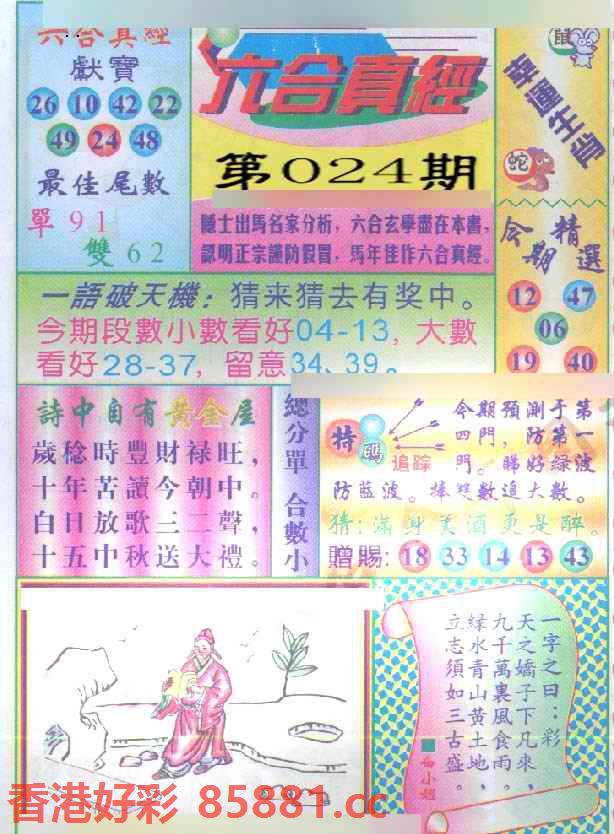 六合真經
獻寶
26 10 42 22
49 24 48
最佳尾數
單 9 1
雙 6 2
六合真經
第024期
隱士出馬名家分析，六合玄學盡在本書，
認明正宗謹防假冒，馬年佳作六合真經。
鼠
幸運生肖
蛇
今期精選
12 47
06
19 40
一語破天機：猜来猜去有奖中。
今期段數小數看好04-13，大數
看好28-37，留意34、39。
詩中自有黃金屋
歲稔時豐財禄旺，
十年苦讀今朝中。
白日放歌三二聲，
十五中秋送大禮。
總分單 合數小
特碼
追踪
今期預測于第
四門，防第一
門。睇好綠波
防藍波。捧雙數追大數。
猜：滿身美酒更是醉。
贈賜：18 33 14 13 43
一字之曰：彩
天之嬌子下凡來，
九千萬裏風食雨，
绿水青山黃土地，
立志須如三古盛。
小姐
香港好彩 85881.cc